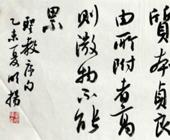 質本貞良
由所附者高
則微物不能
累
聖教序句
乙未夏